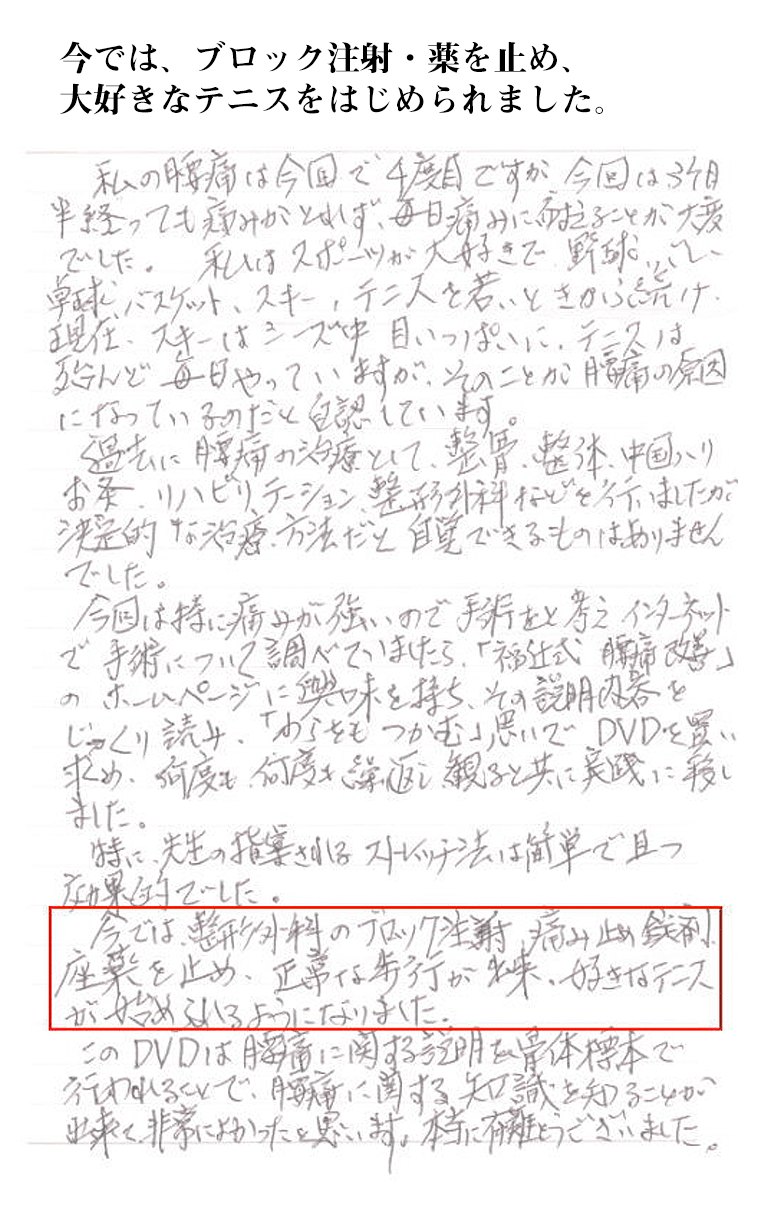 今では、ブロック注射・薬を止め、
大好きなテニスをはじめられました。
私の腰痛は今回で4度目ですが 今回は3ケ月
半経っても痛みがとれず、毎日痛みに耐えることが大変
でした。 私はスポーツが大好きで 野球、バレー
卓球、バスケット、スキー、テニスを若いときから続け、
現在、スキーはシーズン中 目いっぱいに、テニスは
殆んど 毎日やっていますが、そのことが 腰痛の原因
になっているのだと自認しています。
過去に 腰痛の治療として、整骨、整体、中国ハリ
お灸、リハビリテーション、整形外科などを行いましたが
決定的な治療方法だと 自覚できるものはありません
でした。
今回は特に痛みが強いので 手術をと考え インターネット
で 手術について調べていましたら、「福辻式 腰痛改善」
の ホームページに興味を持ち、その説明内容を
じっくり読み、「わらをもつかむ」思いで DVDを買い
求め、何度も、何度も繰返し観ると共に実践に移し
ました。
特に、先生の指導されるストレッチ法は簡単で且つ
効果的でした。
今では、整形外科のブロック注射、痛み止め錠剤、
座薬を止め、正常な歩行が出来、好きなテニス
が始められるようになりました。
このDVDは腰痛に関する説明を骨体標本で
行われることで、腰痛に関する知識を知ることが
出来て、非常によかったと思います。本当に有難とうございました。